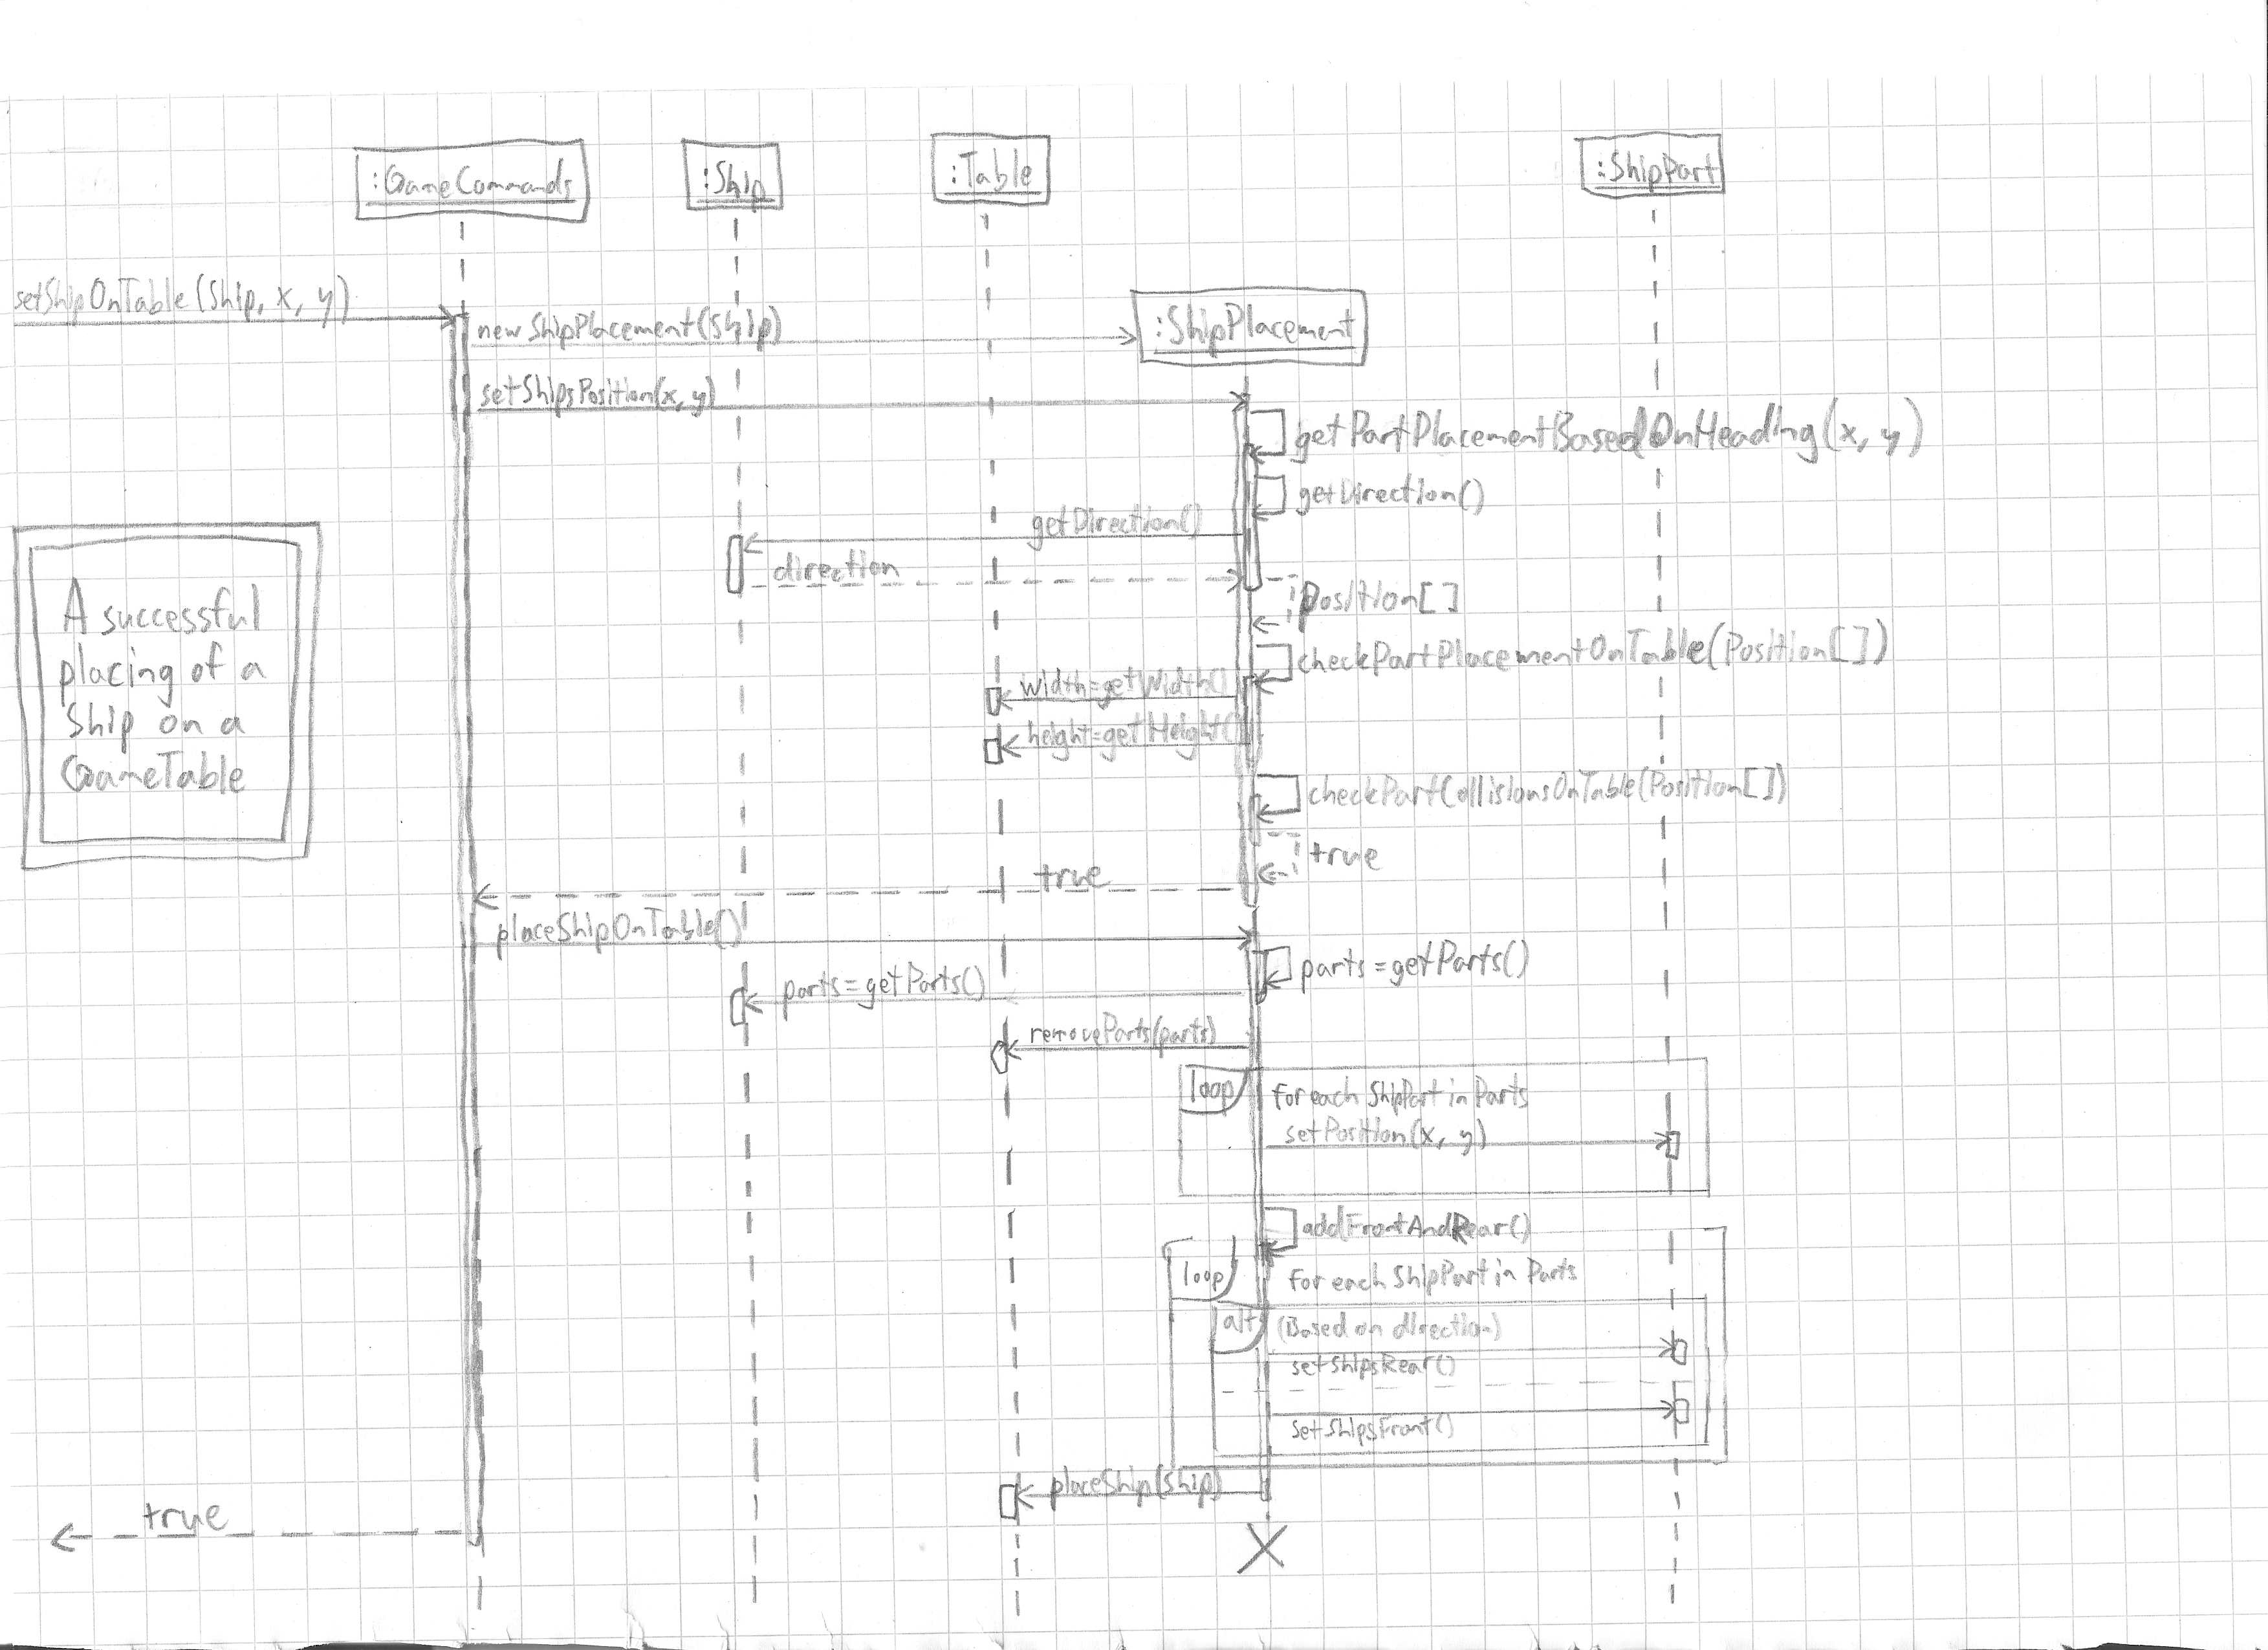 :GameCommands
:Ship
:Table
:ShipPart
setShipOnTable(Ship, x, y)
newShipPlacement(Ship)
:ShipPlacement
setShipsPosition(x, y)
getPartPlacementBasedOnHeading(x, y)
getDirection()
getDirection()
direction
Position[]
A successful
placing of a
Ship on a
GameTable
checkPartPlacementOnTable(Position[])
width=getWidth()
height=getHeight()
checkPartCollisionsOnTable(Position[])
true
true
placeShipOnTable()
parts=getParts()
parts=getParts()
removeParts(parts)
loop
for each ShipPart in Parts
setPosition(x, y)
addFrontAndRear()
loop
for each ShipPart in Parts
alt
(Based on direction)
setShipsRear()
setShipsFront()
placeShip(ship)
true